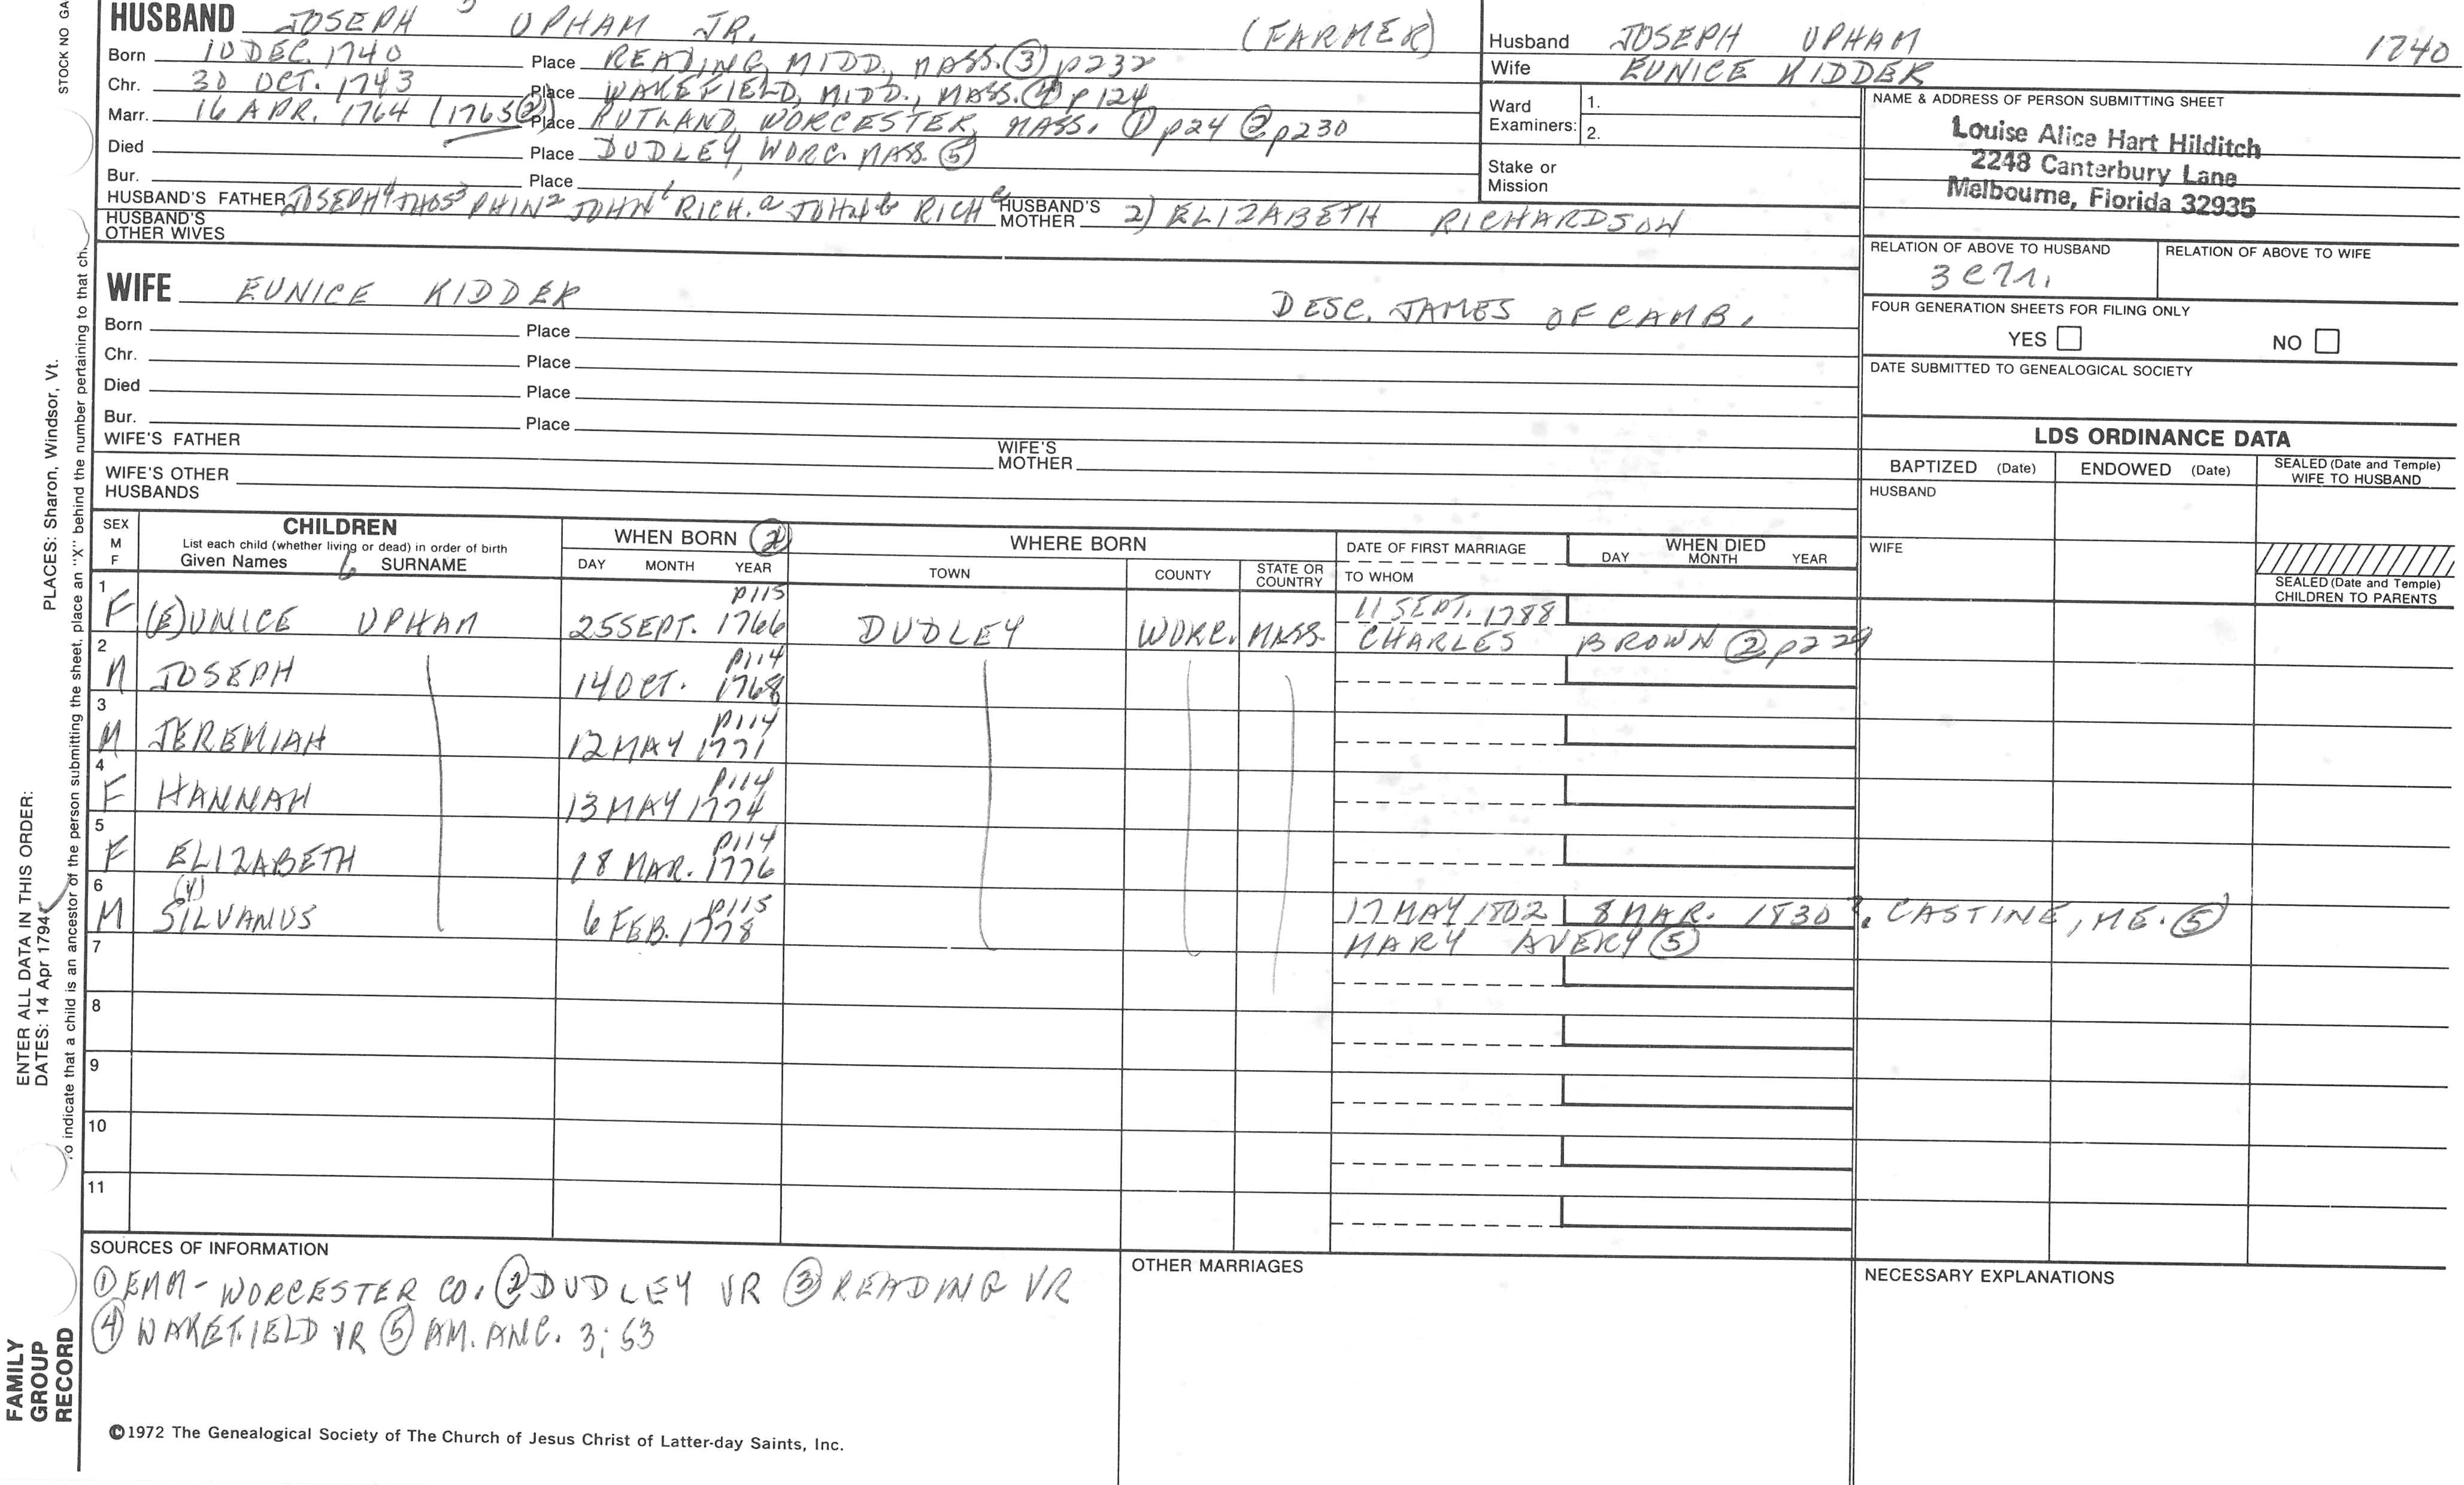 STOCK NO GA
HUSBAND JOSEPH 5 UPHAM JR. (FARMER)
Born 10 DEC. 1740 Place READING, MIDD., MASS. ③ p232
Chr. 30 OCT. 1743 Place WAKEFIELD, MIDD., MASS. ④ p 124
Marr. 16 APR. 1764 (1765 ②) Place RUTLAND, WORCESTER, MASS. ① p24 ② p230
Died Place DUDLEY, WORC. MASS. ⑤
Bur. Place
HUSBAND'S FATHER JOSEPH⁴ THOS³ PHIN² JOHN¹ RICH.ᵃ JOHNᵇ RICHᶜ HUSBAND'S MOTHER 2) ELIZABETH RICHARDSON
HUSBAND'S OTHER WIVES
Husband JOSEPH UPHAM 1740
Wife EUNICE KIDDER
Ward Examiners: 1.
2.
Stake or Mission
NAME & ADDRESS OF PERSON SUBMITTING SHEET
Louise Alice Hart Hilditch
2248 Canterbury Lane
Melbourne, Florida 32935
RELATION OF ABOVE TO HUSBAND RELATION OF ABOVE TO WIFE
FOUR GENERATION SHEETS FOR FILING ONLY
YES NO
DATE SUBMITTED TO GENEALOGICAL SOCIETY
WIFE EUNICE KIDDER DESC. JAMES OF CAMB.
Born Place
Chr. Place
Died Place
Bur. Place
WIFE'S FATHER WIFE'S MOTHER
WIFE'S OTHER HUSBANDS
LDS ORDINANCE DATA
BAPTIZED (Date) ENDOWED (Date) SEALED (Date and Temple) WIFE TO HUSBAND
HUSBAND
WIFE
SEALED (Date and Temple) CHILDREN TO PARENTS
SEX M F
CHILDREN
List each child (whether living or dead) in order of birth
Given Names 6 SURNAME
WHEN BORN ②
DAY MONTH YEAR
WHERE BORN
TOWN COUNTY STATE OR COUNTRY
DATE OF FIRST MARRIAGE
TO WHOM
WHEN DIED
DAY MONTH YEAR
1 F (E)UNICE UPHAM 25 SEPT. 1766 p115 DUDLEY WORC. MASS. 11 SEPT. 1788
CHARLES BROWN ② p229
2 M JOSEPH 14 OCT. 1768 p114
3 M JEREMIAH 12 MAY 1771 p114
4 F HANNAH 13 MAY 1774 p114
5 F ELIZABETH 18 MAR. 1776 p114
6 M SILVANUS (Y) 6 FEB. 1778 p115 17 MAY 1802 8 MAR. 1830 ?. CASTINE, ME. ⑤
MARY AVERY ⑤
7
8
9
10
11
SOURCES OF INFORMATION
① EMM - WORCESTER CO. ② DUDLEY VR ③ READING VR
④ WAKEFIELD VR ⑤ AM. ANC. 3; 53
OTHER MARRIAGES
NECESSARY EXPLANATIONS
©1972 The Genealogical Society of The Church of Jesus Christ of Latter-day Saints, Inc.
FAMILY GROUP RECORD
ENTER ALL DATA IN THIS ORDER:
DATES: 14 Apr 1794
PLACES: Sharon, Windsor, Vt.
o indicate that a child is an ancestor of the person submitting the sheet, place an "X" behind the number pertaining to that ch